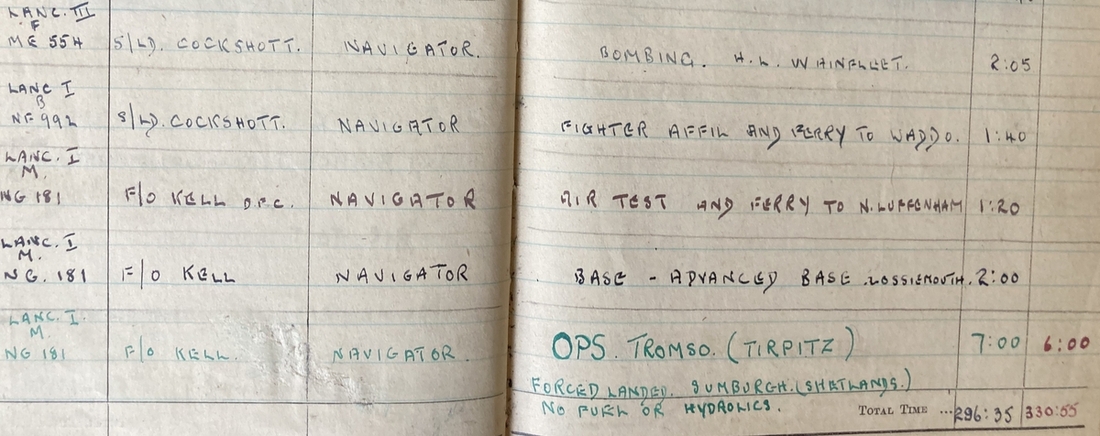 LANC. III
F
ME 554 S/LD. COCKSHOTT. NAVIGATOR. BOMBING. H.L. WAINFLEET. 2:05
LANC I
B
NF 992 S/LD. COCKSHOTT. NAVIGATOR FIGHTER AFFIL AND FERRY TO WADDO. 1:40
LANC. I
M.
NG 181 F/O KELL D.F.C. NAVIGATOR AIR TEST AND FERRY TO N. LUFFENHAM 1:20
LANC. I
M.
NG. 181 F/O KELL NAVIGATOR BASE - ADVANCED BASE LOSSIEMOUTH. 2:00
LANC. I.
M.
NG 181 F/O KELL. NAVIGATOR. OPS. TROMSO. (TIRPITZ) 7:00 6:00
FORCED LANDED. SUMBURGH. (SHETLANDS.)
NO FUEL OR HYDROLICS. TOTAL TIME ... 296:35 330:55